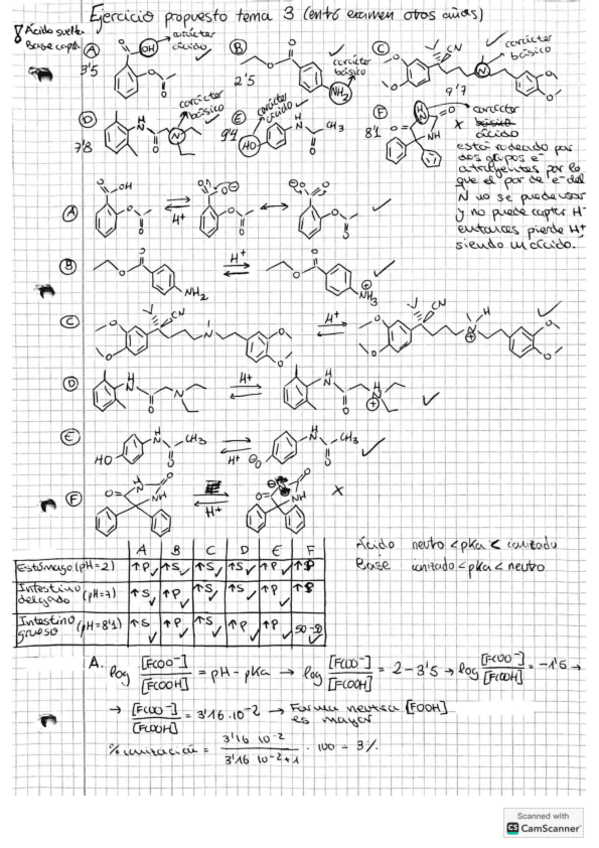 Ejercicio propuesto tema 3 (entó examen otros años)
! Ácido suelta
Base capta
A OH carácter ácido
3'5
B NH2 carácter básico
2'5
C CN N carácter básico
9'7
D H N O N carácter básico
7'8
E HO carácter ácido H N O CH3
9'4
F H N O O NH
8'1
x carácter
básico
ácido
está rodeado por
dos grupos e-
atrayentes por lo
que el par de e- del
N no se puede usar
y no puede captar H+
entonces pierde H+
siendo un ácido.
A H+
B H+ NH2 NH3
C CN H+ CN H
D H+
E HO CH3 H+ CH3
F NH H+ NH x
A B C D E F
Estómago (pH=2) ↑P ↑S ↑S ↑S ↑P ↑P
Intestino delgado (pH=7) ↑S ↑P ↑S ↑S ↑P ↑P
Intestino grueso (pH=8'1) ↑S ↑P ↑S ↑P ↑P 50-50
Ácido neutro < pKa < ionizado
Base ionizado < pKa < neutro
A. log [FCOO-]/[FCOOH] = pH - pKa → log [FCOO-]/[FCOOH] = 2 - 3'5 → log [FCOO-]/[FCOOH] = -1'5 →
→ [FCOO-]/[FCOOH] = 3'16 · 10-2 → Forma neutra [FCOOH] es mayor
% ionización = 3'16 10-2 / 3'16 10-2 + 1 · 100 = 3%
Scanned with
CS CamScanner